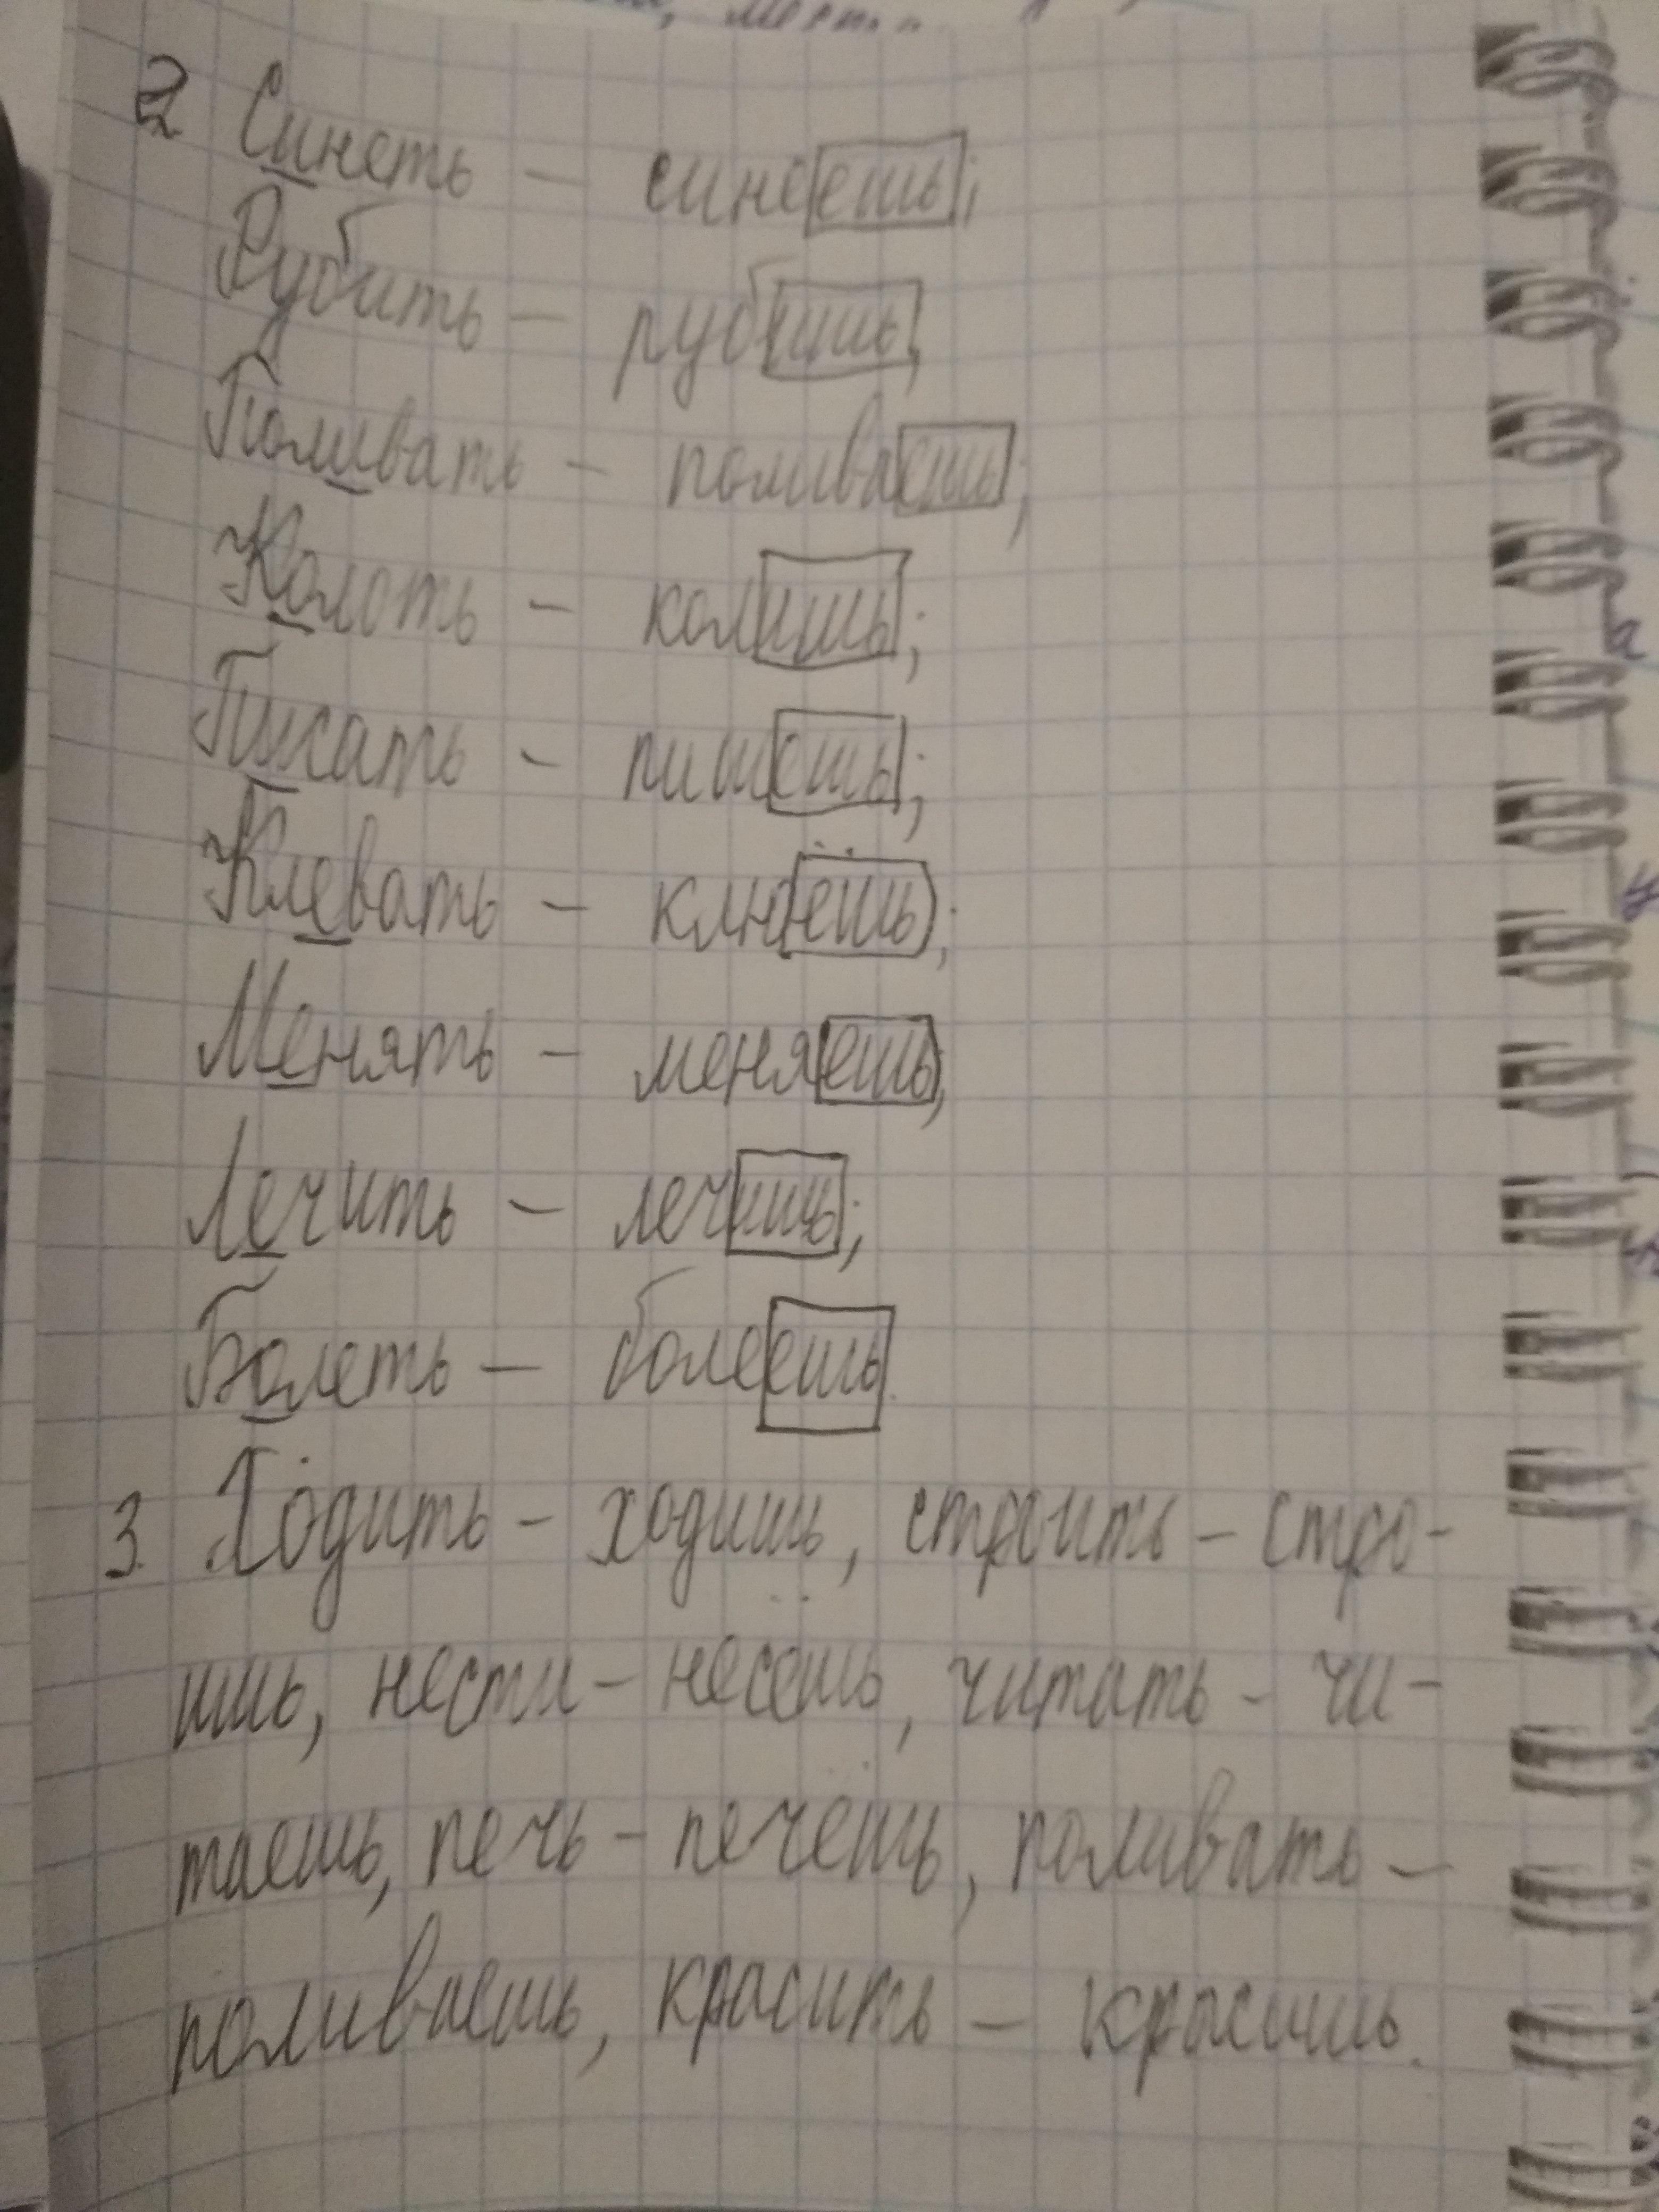 2 Синеть – синеешь;
Рубить – рубишь,
Поливать – поливаешь;
Колоть – колишь;
Писать – пишешь;
Клевать – клюёшь;
Менять – меняешь;
Лечить – лечишь;
Болеть – болеешь.
3. Ходить – ходишь, строить – стро-
ишь, нести – несёшь, читать – чи-
таешь, печь – печёшь, поливать –
поливаешь, красить – красишь.